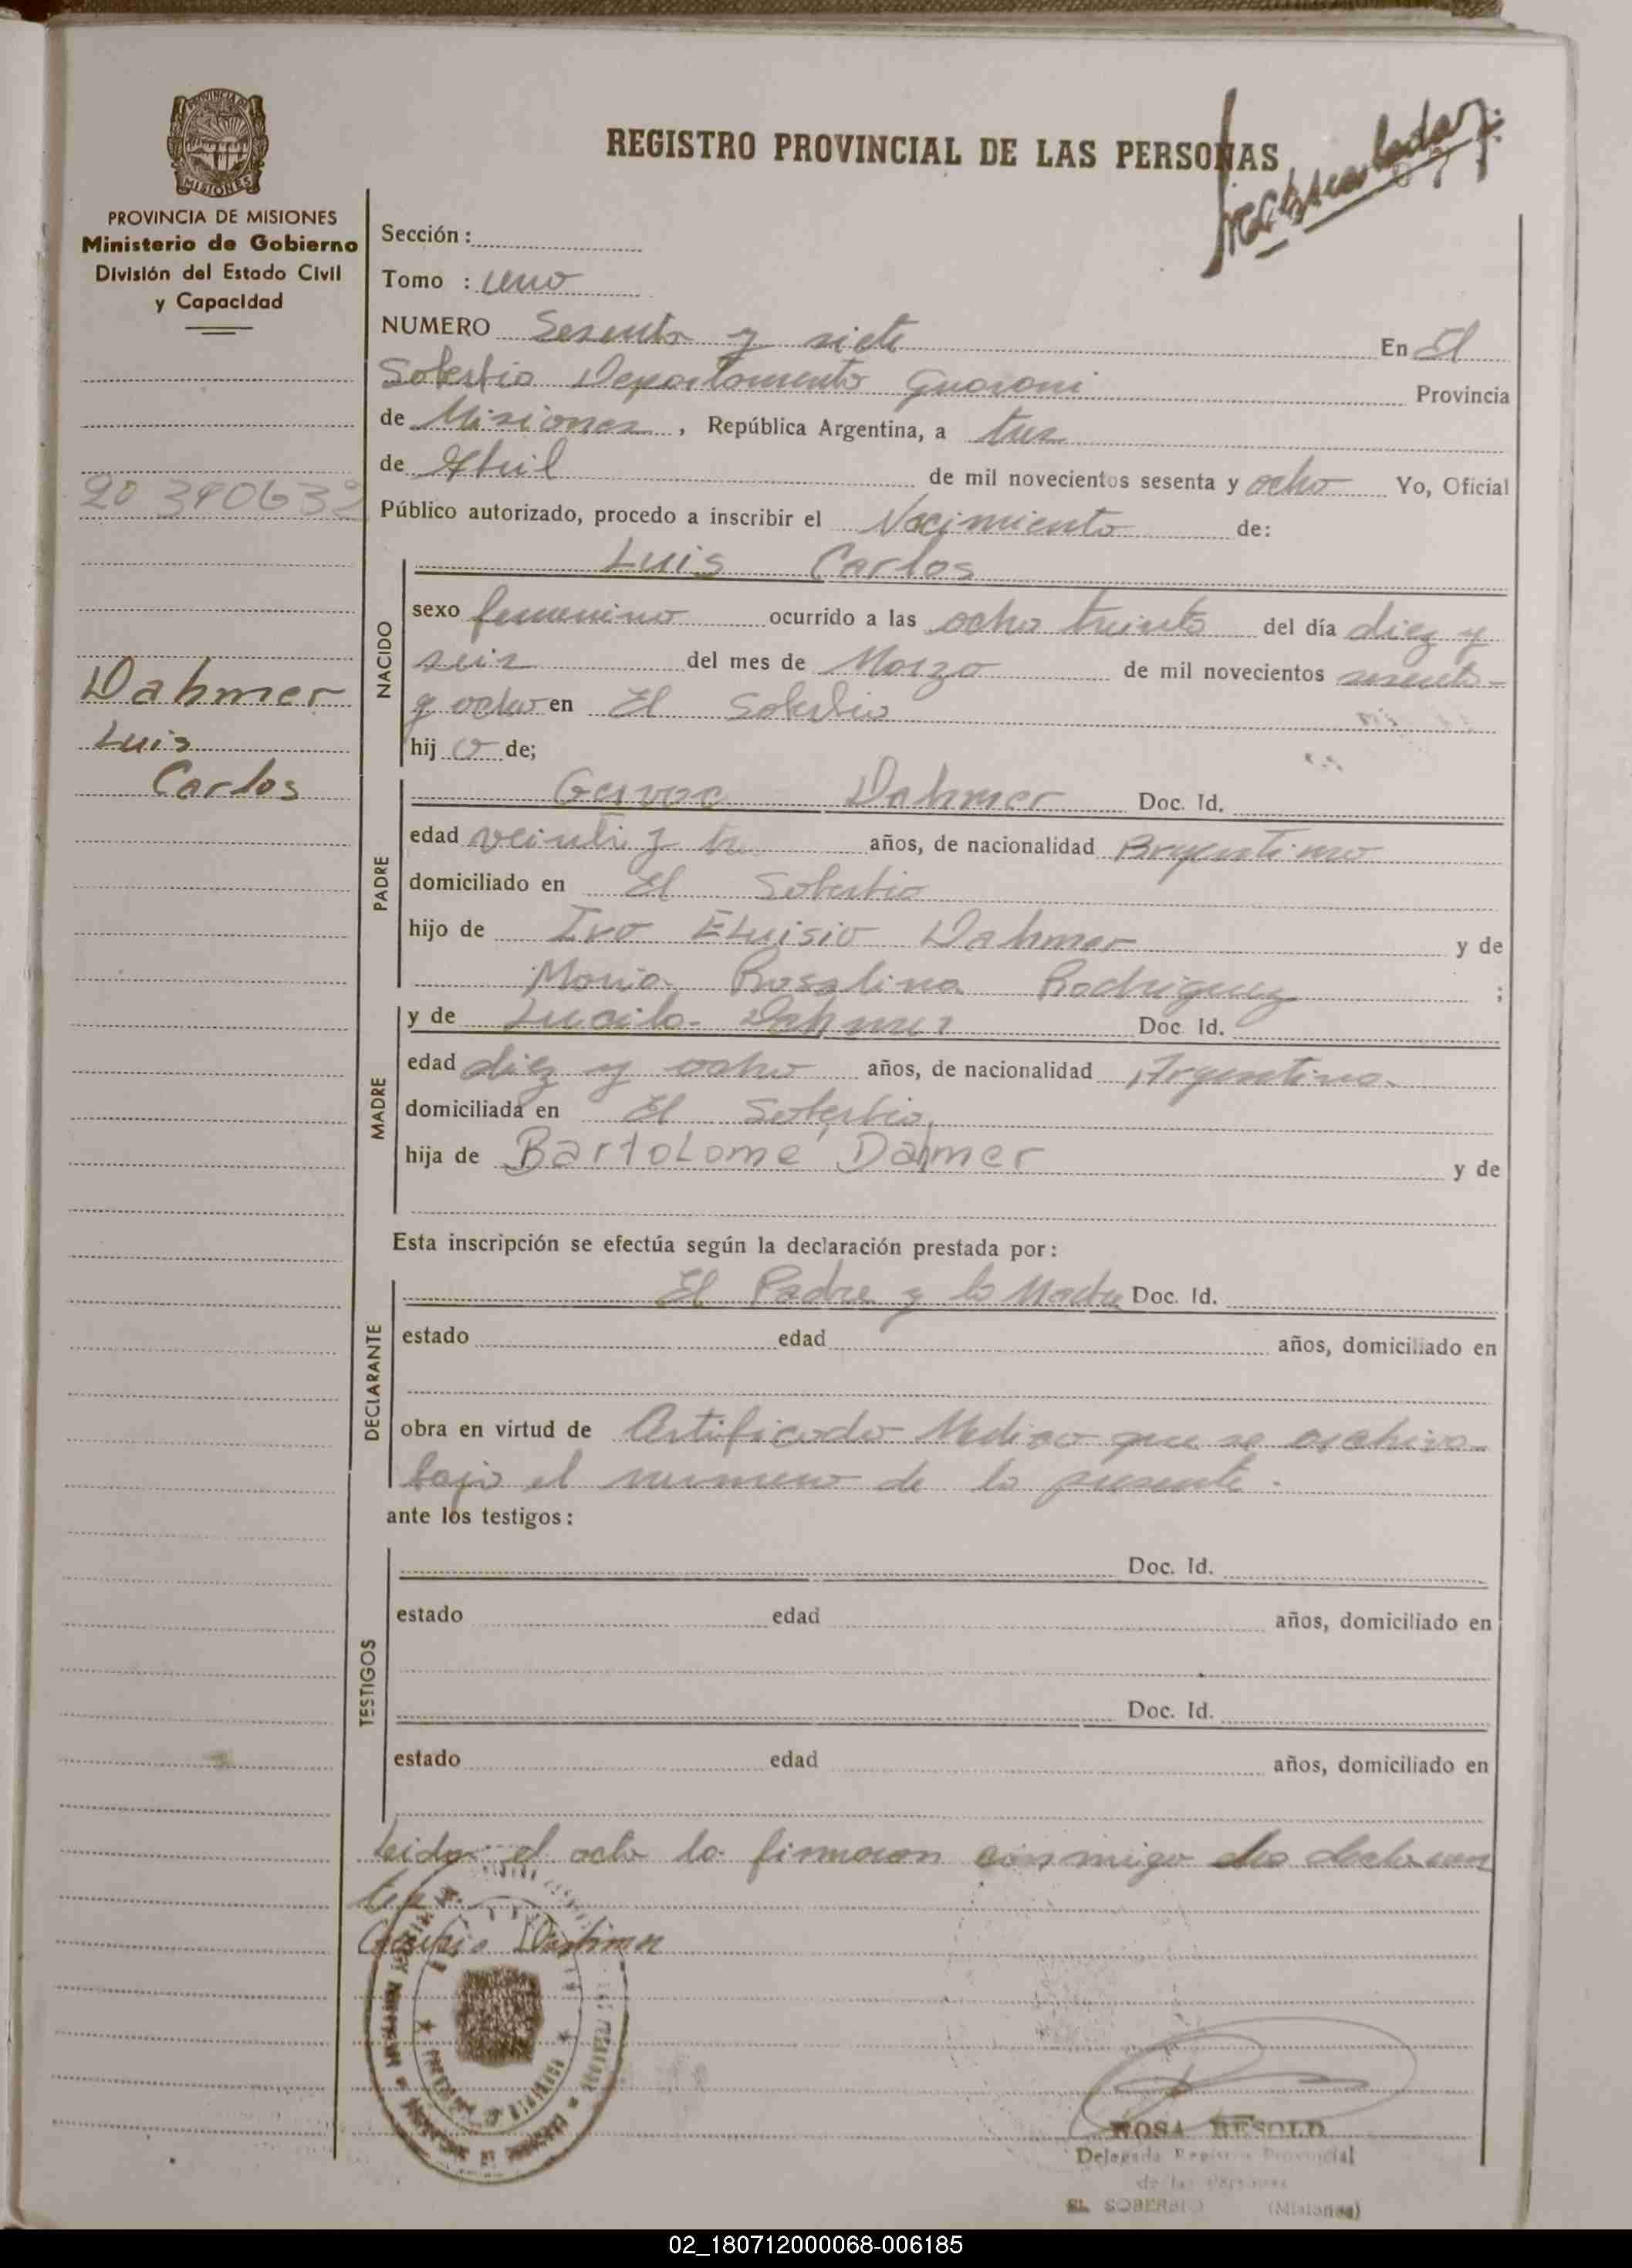 REGISTRO PROVINCIAL DE LAS PERSONAS
PROVINCIA DE MISIONES
MISIONES
PROVINCIA DE MISIONES
Ministerio de Gobierno
División del Estado Civil
y Capacidad
Sección :
Tomo : uno
NUMERO Sesenta y siete En El
Soberbio Departamento Guarani Provincia
de Misiones , República Argentina, a tres
de Abril de mil novecientos sesenta y ocho Yo, Oficial
20 340632
Público autorizado, procedo a inscribir el Nacimiento de:
NACIDO
Luis Carlos
sexo femenino ocurrido a las ocho treinta del día diez y
seis del mes de Marzo de mil novecientos sesenta
y ocho en El Soberbio
hij o de;
Dahmer
Luis
Carlos
PADRE
Dahmer Doc. Id.
edad veinti y tres años, de nacionalidad Argentino
domiciliado en El Soberbio
hijo de Ivo Eluisio Dahmer y de
Maria Rosalina Rodriguez ;
MADRE
y de Lucila Dahmer Doc Id.
edad diez y ocho años, de nacionalidad Argentina
domiciliada en El Soberbio
hija de Bartolome Dahmer y de
Esta inscripción se efectúa según la declaración prestada por :
DECLARANTE
El Padre y la Madre Doc. Id.
estado edad años, domiciliado en
obra en virtud de Certificado Medico que se archiva
bajo el numero de la presente .
ante los testigos :
TESTIGOS
Doc. Id.
estado edad años, domiciliado en
Doc. Id.
estado edad años, domiciliado en
Leida el acta la firmaron conmigo los declaran
tes
Dahmer
ROSA BESOLD
Delegada Registro Provincial
de las Personas
EL SOBERBIO (Misiones)
02_180712000068-006185